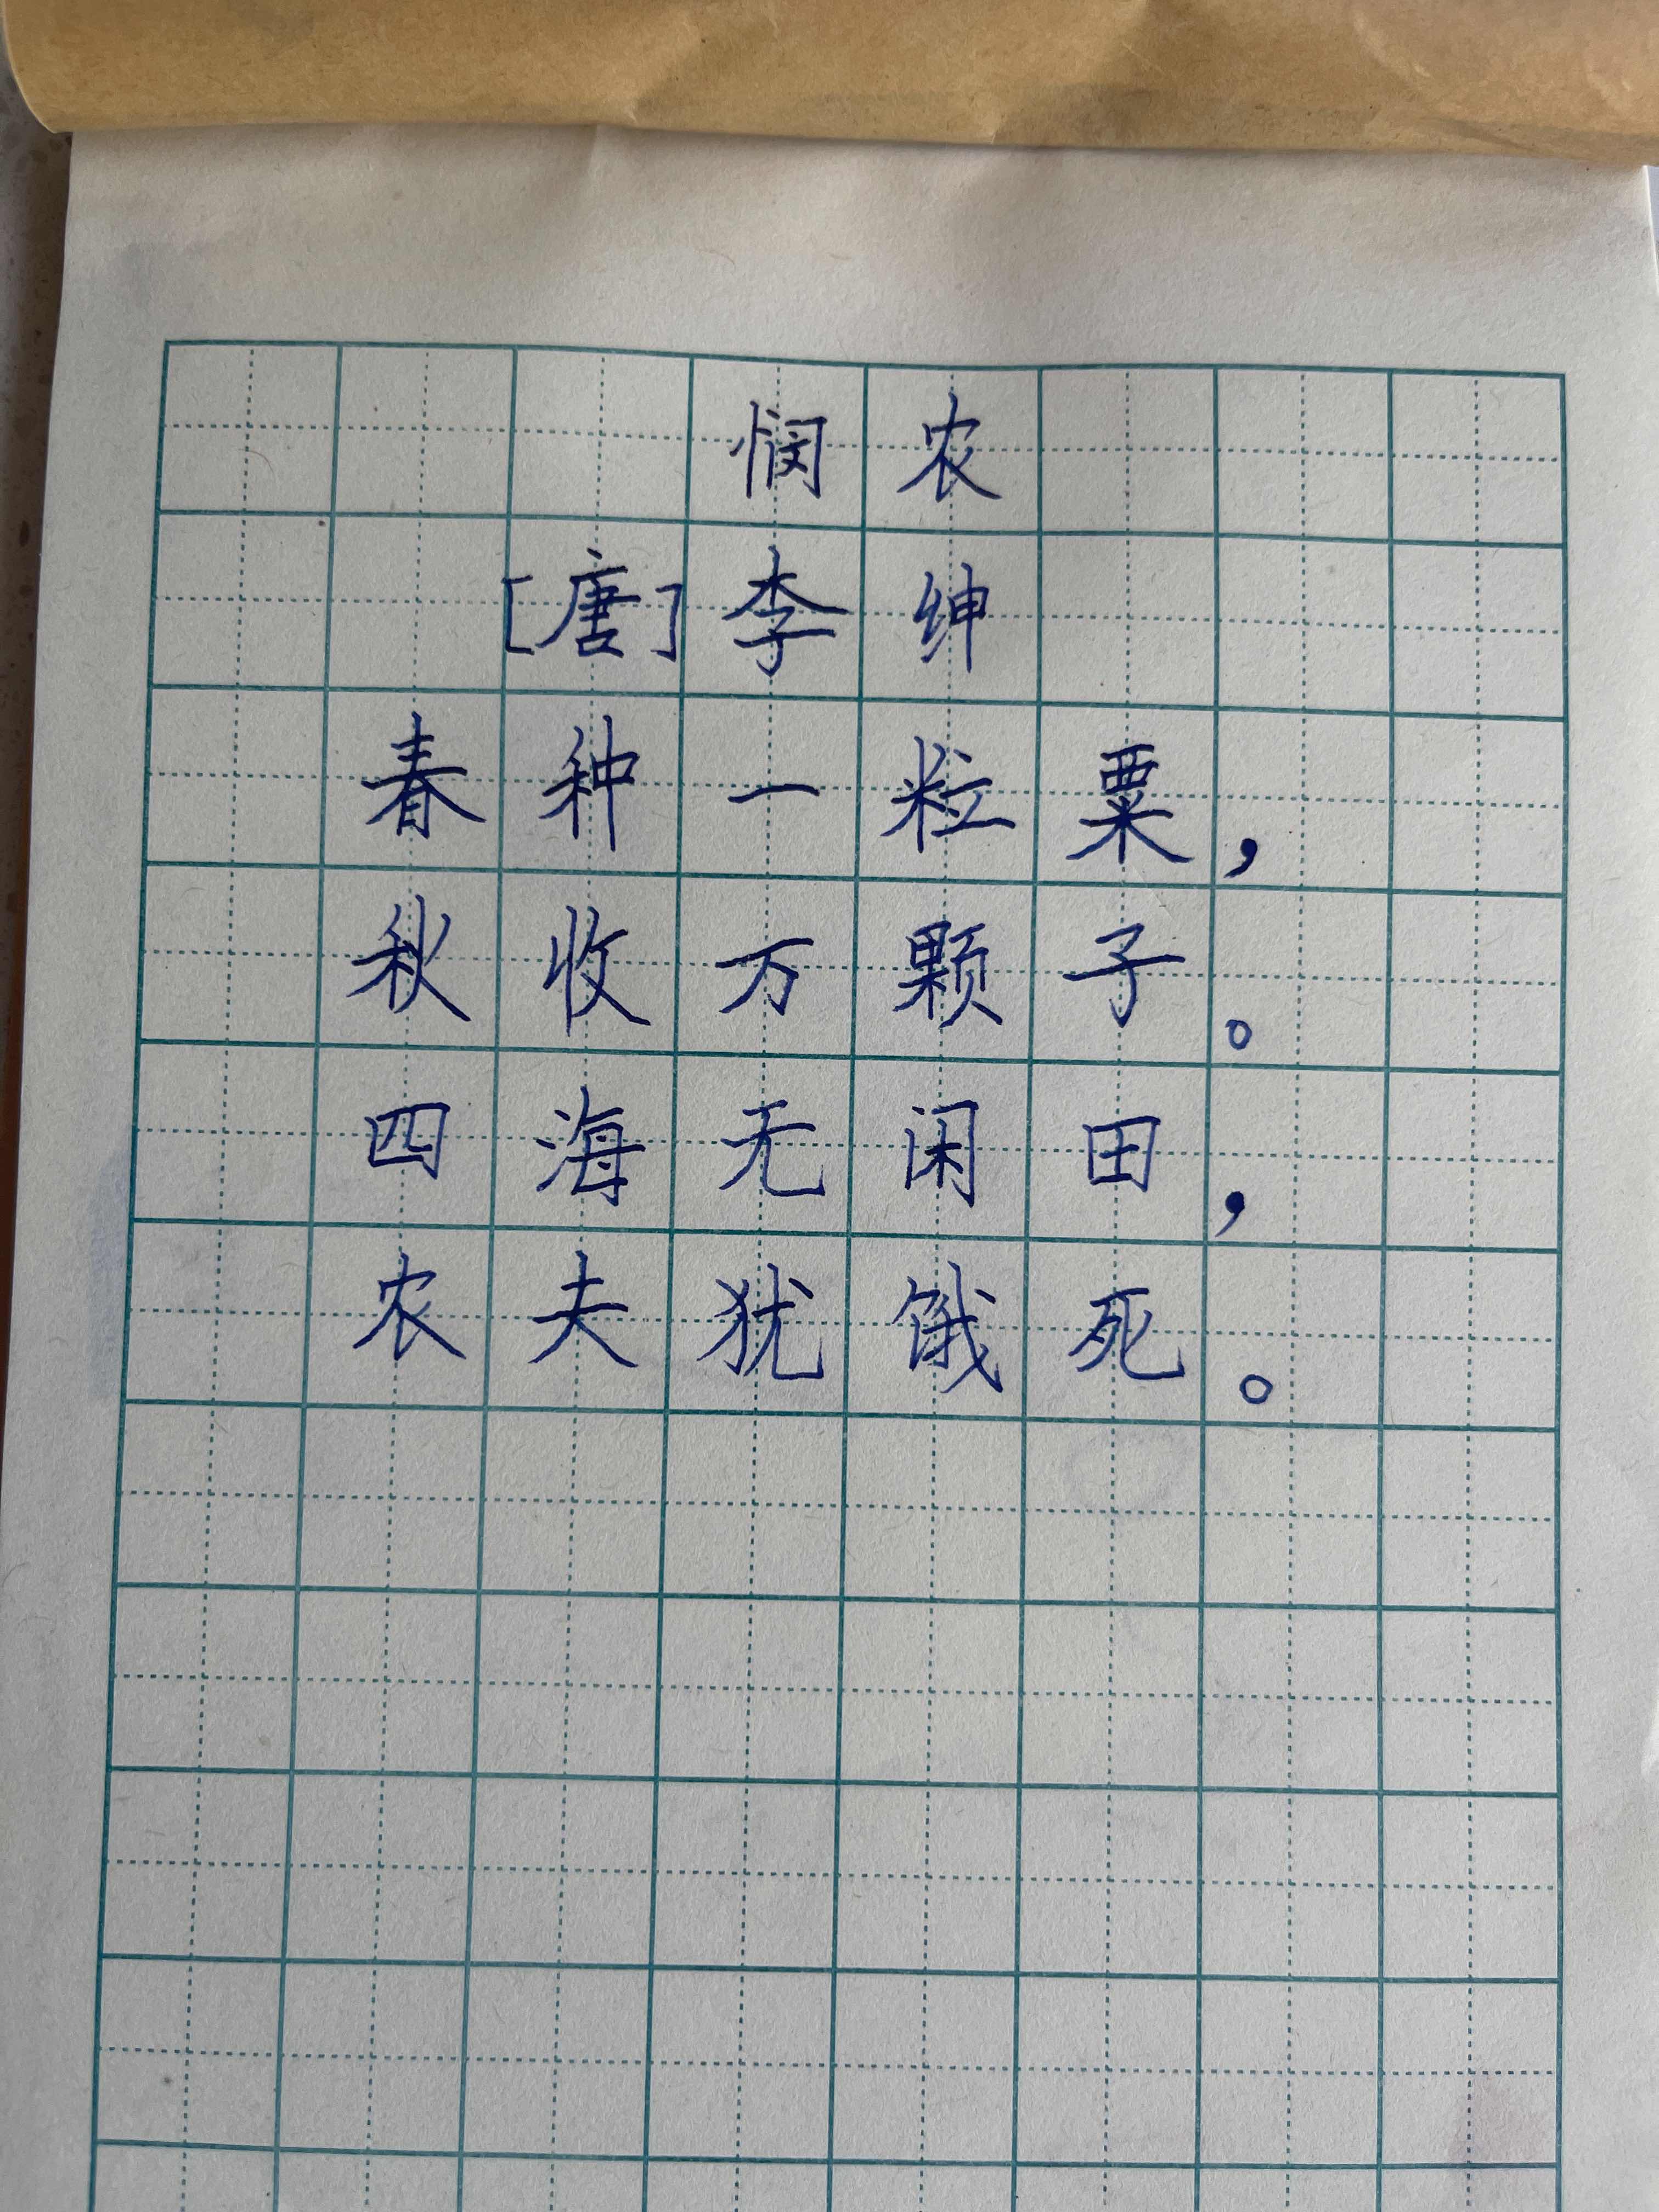 悯农
[唐]李绅
春种一粒粟，
秋收万颗子。
四海无闲田，
农夫犹饿死。